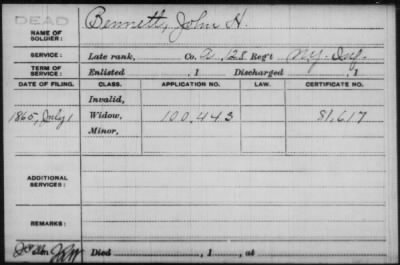 DEAD
NAME OF SOLDIER: Bennett, John H.
SERVICE: Late rank, Co. A, 128 Reg't N.Y. Inf.
TERM OF SERVICE: Enlisted , 1 Discharged , 1
DATE OF FILING. CLASS. APPLICATION NO. LAW. CERTIFICATE NO.
Invalid,
1865, July 1 Widow, 100,443 81,617
Minor,
ADDITIONAL SERVICES:
REMARKS:
Died , 1 , at